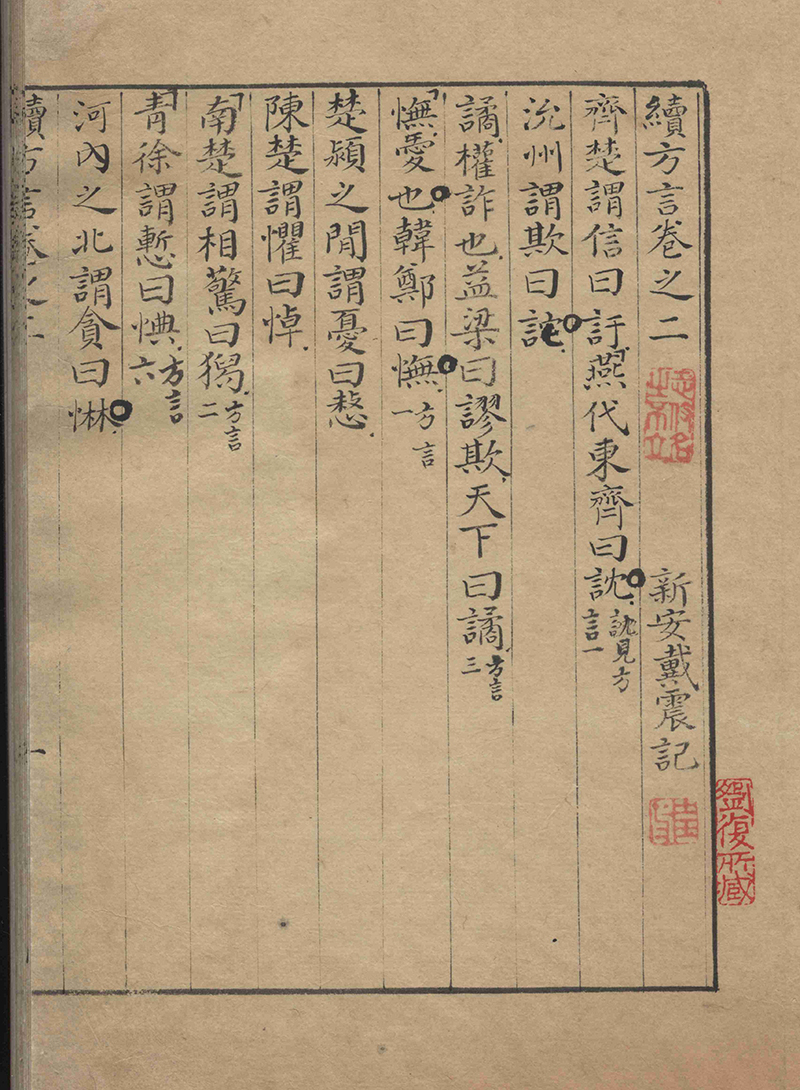 續方言卷之二 新安戴震記
齊楚謂信曰訏燕代東齊曰訦訦見方言一
沇州謂欺曰詑
譎權詐也益梁曰謬欺天下曰譎方言三
憮愛也韓鄭曰憮方言一
楚潁之閒謂憂曰慗
陳楚謂懼曰悼
南楚謂相驚曰獡方言二
青徐謂慙曰㥏方言六
河內之北謂貪曰惏
續方言卷之二
一
劉復所藏